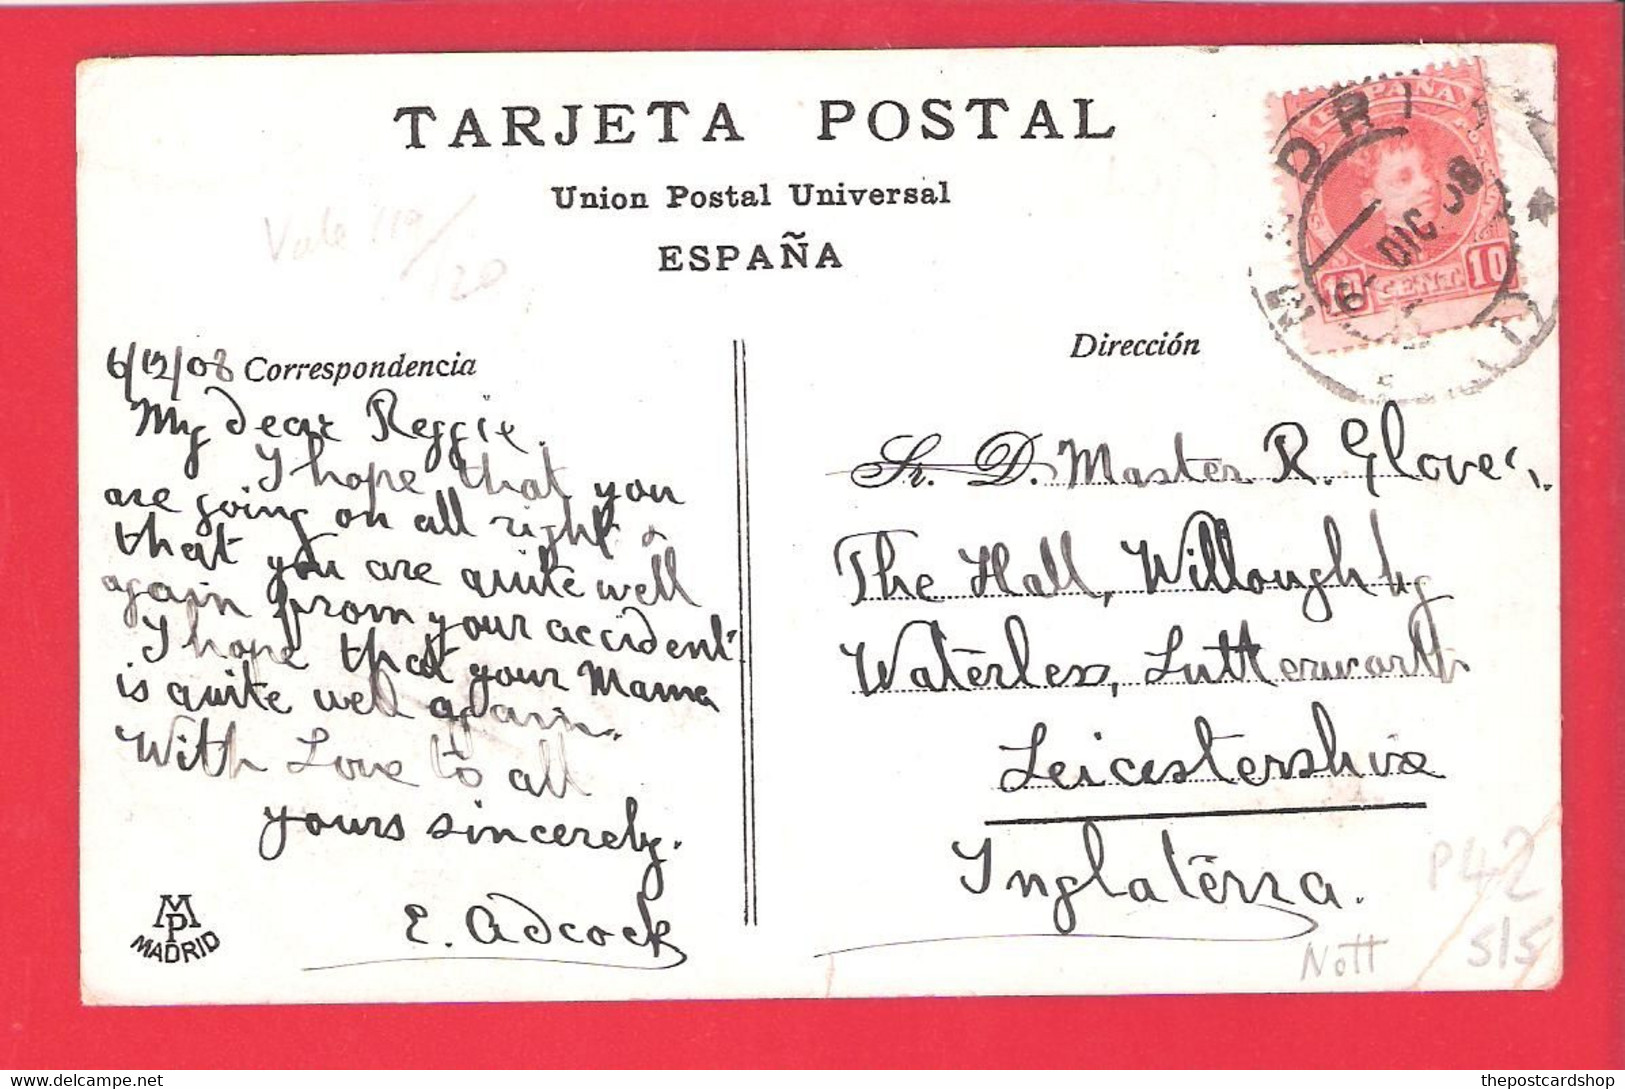 TARJETA POSTAL
Union Postal Universal
ESPAÑA
6/12/08 Correspondencia
My dear Reggie,
I hope that you
are going on all right &
that you are quite well
again from your accident
I hope that your Mama
is quite well again.
With Love to all
yours sincerely.
E. Adcock
MP
MADRID
Dirección
Sr. D. Master R. Glover.
The Hall, Willoughby
Waterless, Lutterworth
Leicestershire
Inglaterra.
ESPAÑA
10 CENT. 10
MADRID
6 DIC 08
P42
Nott
5/5
thepostcardshop